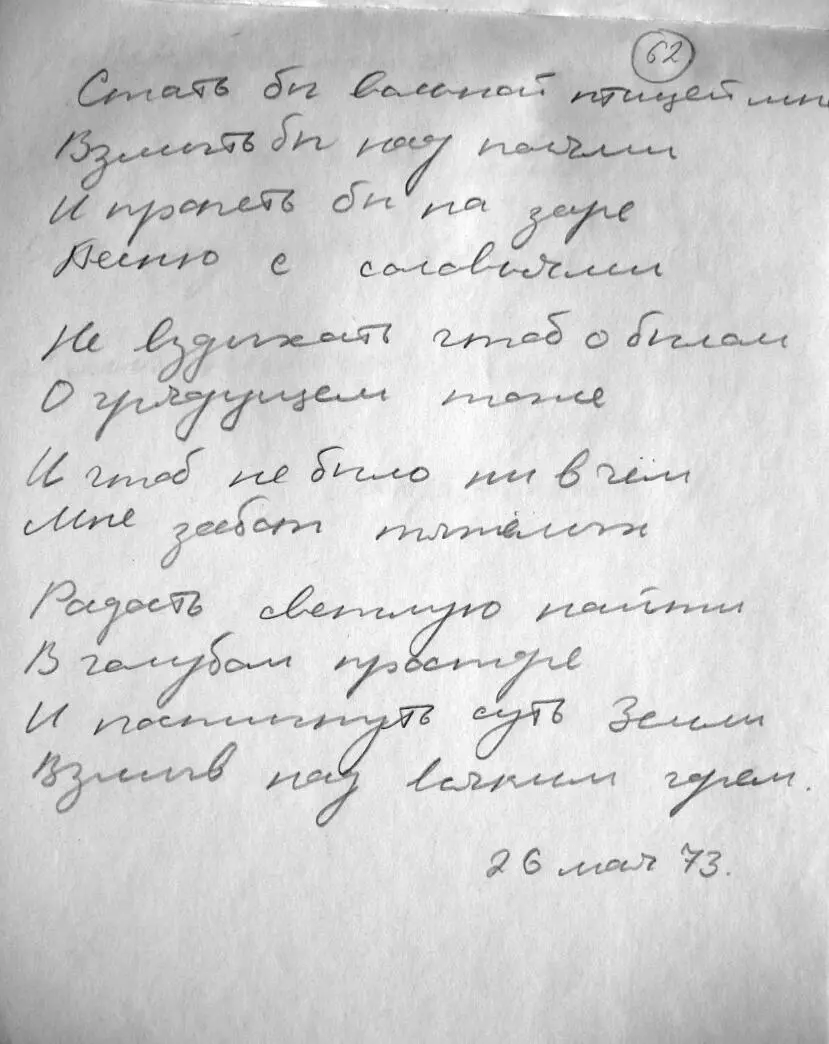 62
Стать бы вольной птицей мне
Взмыть бы над полями
И пропеть бы на заре
Песню с соловьями
Не вздыхать чтоб о былом
О грядущем тоже
И чтоб не было ни в чём
Мне забот тяжёлых
Радость светлую найти
В голубом просторе
И постигнуть суть Земли
Взмыв над всяким горем.
26 мая 73.